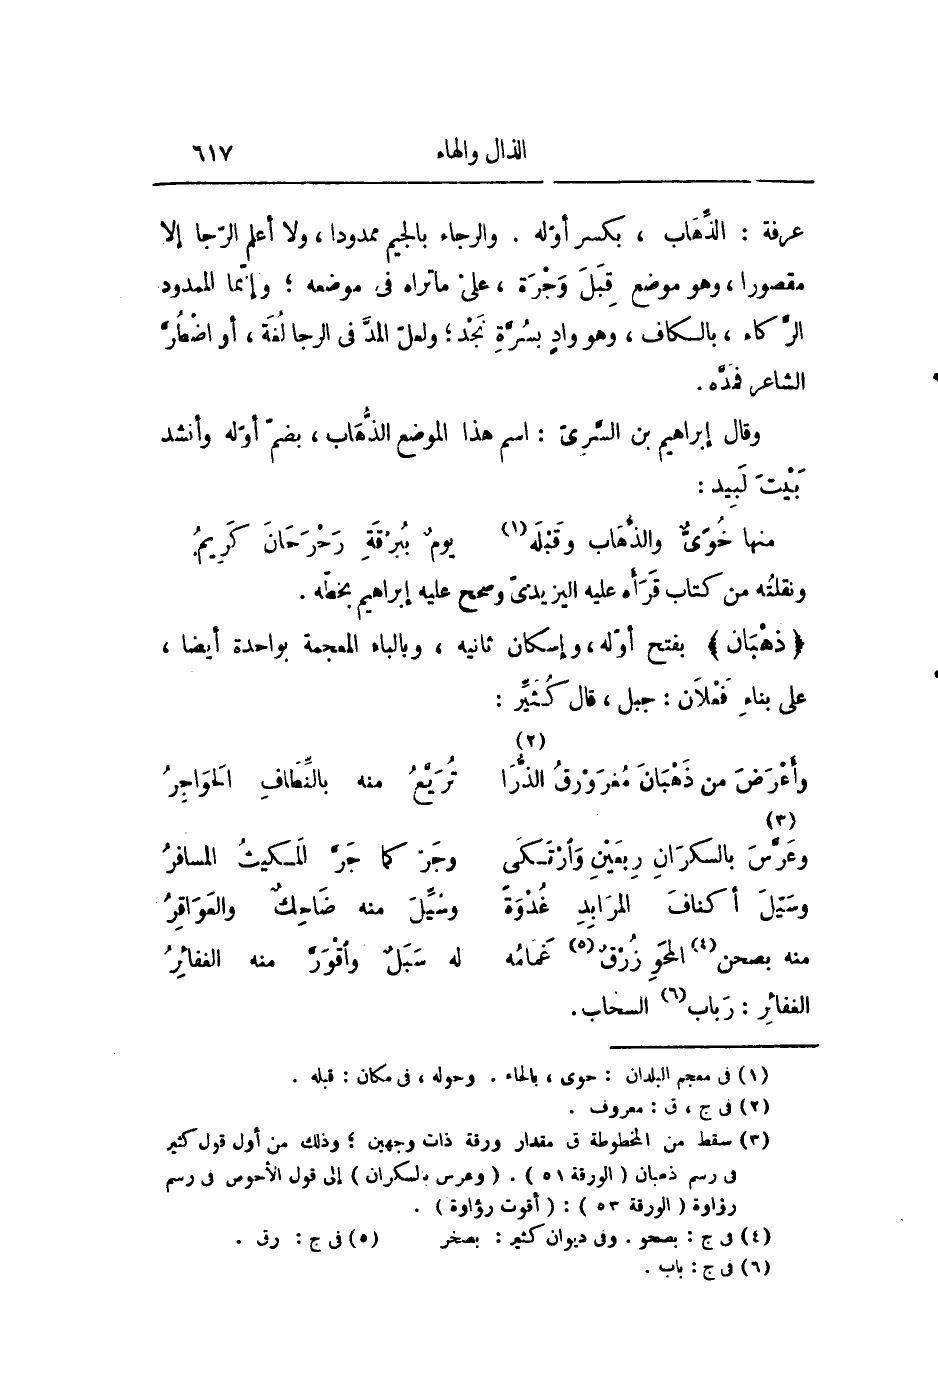 الذال والهاء ٦١٧
عرفة : الذِّهَاب ، بكسر أوّله . والرجاء بالجيم ممدودا ، ولا أعلم الرّجا إلا
مقصورا ، وهو موضع قِبَلَ وَجْرَة ، علىٰ ماتراه فى موضعه ؛ وإنّما الممدود
الرَّكاء ، بالكاف ، وهو وادٍ بسُرَّةِ نَجْد ؛ ولعلّ المدَّ فى الرجا لُغَة ، أو اضْطُرَّ
الشاعر فمَدَّه .
وقال إبراهيم بن السَّرِىّ : اسم هذا الموضع الذُّهَاب ، بضمّ أوّله وأنشد
بَيْتَ لَبِيد :
منها خُوَىٌّ والذُّهَاب وقَبْلَه (١) يومٌ بُبرْقَةِ رَحْرَحَانَ كَرِيمُ
ونقلتُه من كتاب قَرَأَه عليه اليزيدىّ وصحح عليه إبراهيم بخطّه .
﴿ ذهْبَان ﴾ بفتح أوّله ، وإسكان ثانيه ، وبالباء المعجمة بواحدة أيضا ،
على بناءِ فَعْلاَن : جبل ، قال كُثَيِّر :
(٢)
وأَعْرَضَ من ذَهْبَانَ مُغرَوْرقُ الذُّرَا تُرَيَّعُ منه بالنِّطَافِ الحَوَاجِرُ
(٣)
وعَرَّسَ بالسكرَانِ رِبعَيْنِ وَٱرْتَكَى وجَرّ كما جَرَّ لَمكيثُ المسافرُ
وسَيّلَ أكنافَ المَرَابِدِ غُدْوَةً وسُيِّلَ منه ضَاحِكٌ والعَوَاقِرُ
منه بصحن (٤) المَحَوِ زُرْقٌ (٥) غَمَامُه له سَبَلٌ وٱقْوَرَّ منه الغفائِرُ
الغفائِر : رَباب (٦) السحاب .
(١) فى معجم البلدان : حوى ، بالحاء . وحوله ، فى مكان : قبله .
(٢) فى ج ، ق : معروف .
(٣) سقط من المخطوطة ق مقدار ورقة ذات وجهين ؛ وذلك من أول قول كثير
فى رسم ذهبان ( الورقة ٥١ ) . ( وعرس بالسكران ) إلى قول الأحوص فى رسم
رؤاوة ( الورقة ٥٣ ) : ( أقوت رؤاوة ) .
(٤) فى ج : بصحو . وفى ديوان كثير : بصخر (٥) فى ج : رق .
(٦) فى ج : باب .